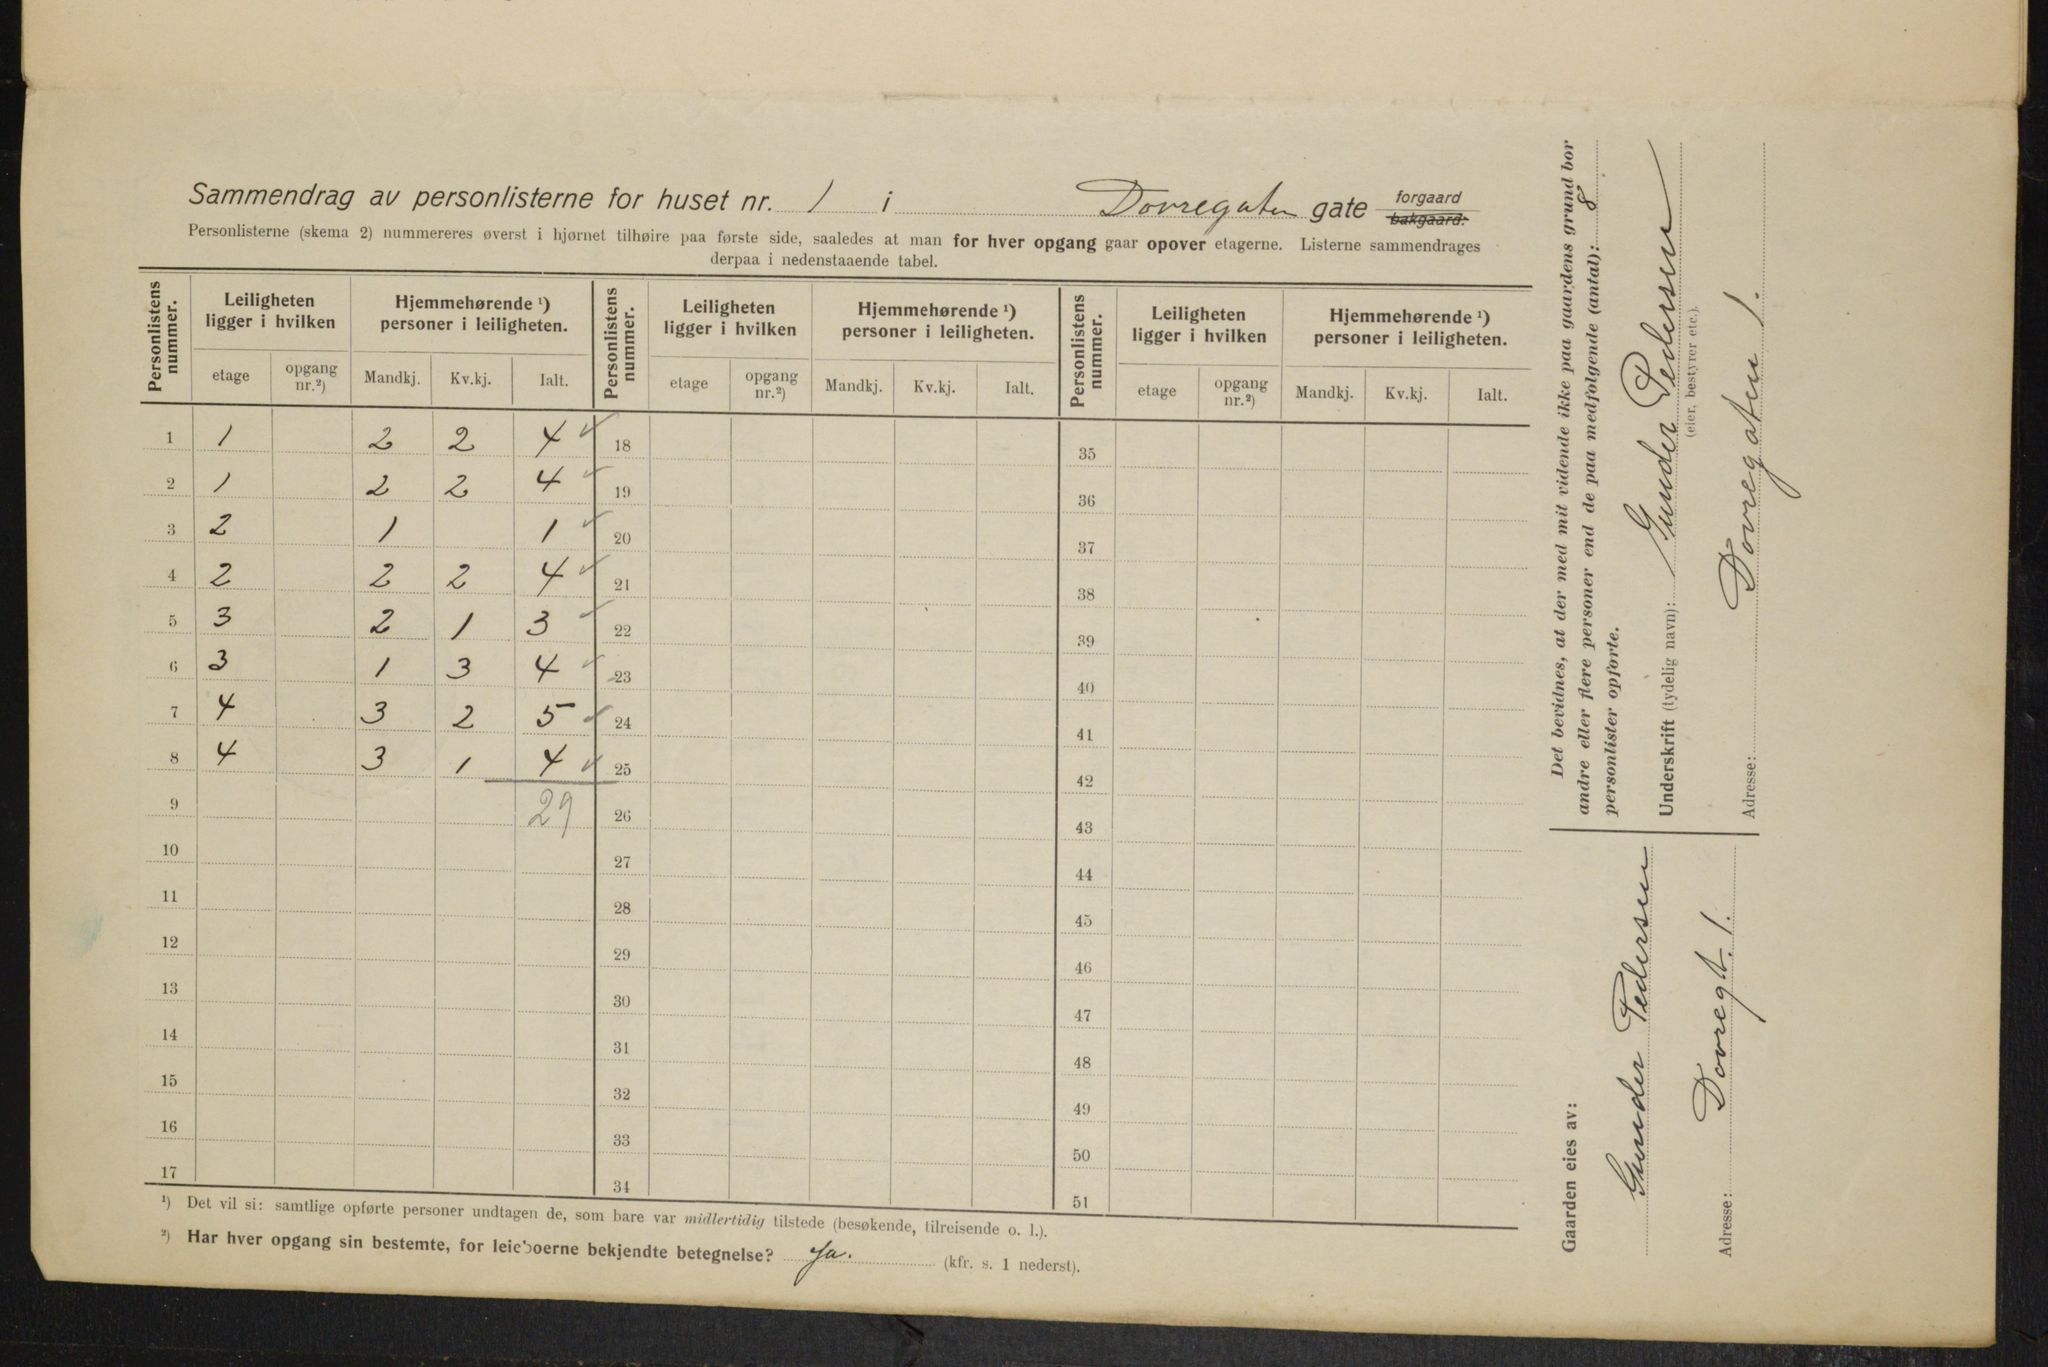 Sammendrag av personlisterne for huset nr. 1 i Dovregaten gate forgaard bakgaard.
Personlisterne (skema 2) nummereres øverst i hjørnet tilhøire paa første side, saaledes at man for hver opgang gaar opover etagerne. Listerne sammendrages
derpaa i nedenstaaende tabel.
Personlistens nummer. Leiligheten ligger i hvilken Hjemmehørende ¹) personer i leiligheten. Personlistens nummer. Leiligheten ligger i hvilken Hjemmehørende ¹) personer i leiligheten. Personlistens nummer. Leiligheten ligger i hvilken Hjemmehørende ¹) personer i leiligheten.
etage opgang nr.²) Mandkj. Kv.kj. Ialt. etage opgang nr.²) Mandkj. Kv.kj. Ialt. etage opgang nr.²) Mandkj. Kv.kj. Ialt.
1 1 2 2 4 ✓ 18 35
2 1 2 2 4 ✓ 19 36
3 2 1 1 ✓ 20 37
4 2 2 2 4 ✓ 21 38
5 3 2 1 3 ✓ 22 39
6 3 1 3 4 ✓ 23 40
7 4 3 2 5 ✓ 24 41
8 4 3 1 4 ✓ 25 42
9 29 26 43
10 27 44
11 28 45
12 29 46
13 30 47
14 31 48
15 32 49
16 33 50
17 34 51
¹) Det vil si: samtlige opførte personer undtagen de, som bare var midlertidig tilstede (besøkende, tilreisende o. l.).
²) Har hver opgang sin bestemte, for leieboerne bekjendte betegnelse? Ja. (kfr. s. 1 nederst).
Det bevidnes, at der med mit vidende ikke paa gaardens grund bor
andre eller flere personer end de paa medfølgende (antal): 8
personlister opførte.
Underskrift (tydelig navn): Gunder Pedersen
(eier, bestyrer etc.).
Adresse: Dovregaten 1.
Gaarden eies av:
Gunder Pedersen
Adresse: Dovregt. 1.